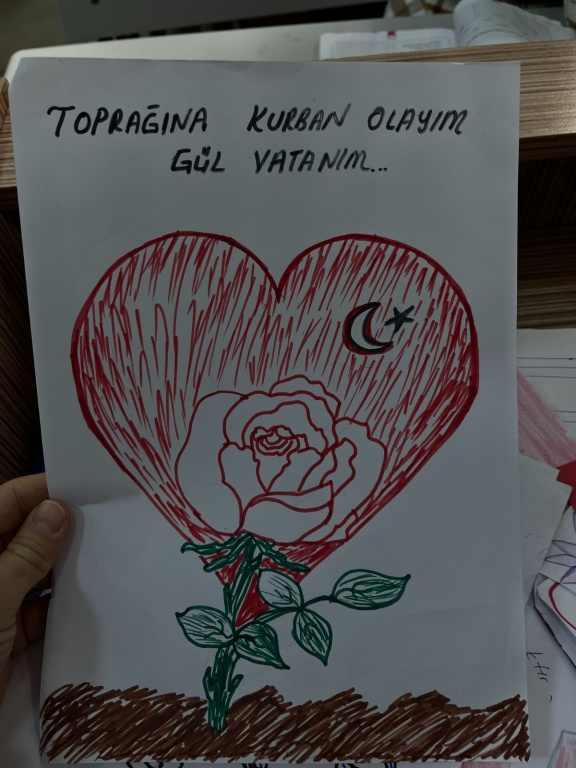 TOPRAĞINA KURBAN OLAYIM
GÜL VATANIM...